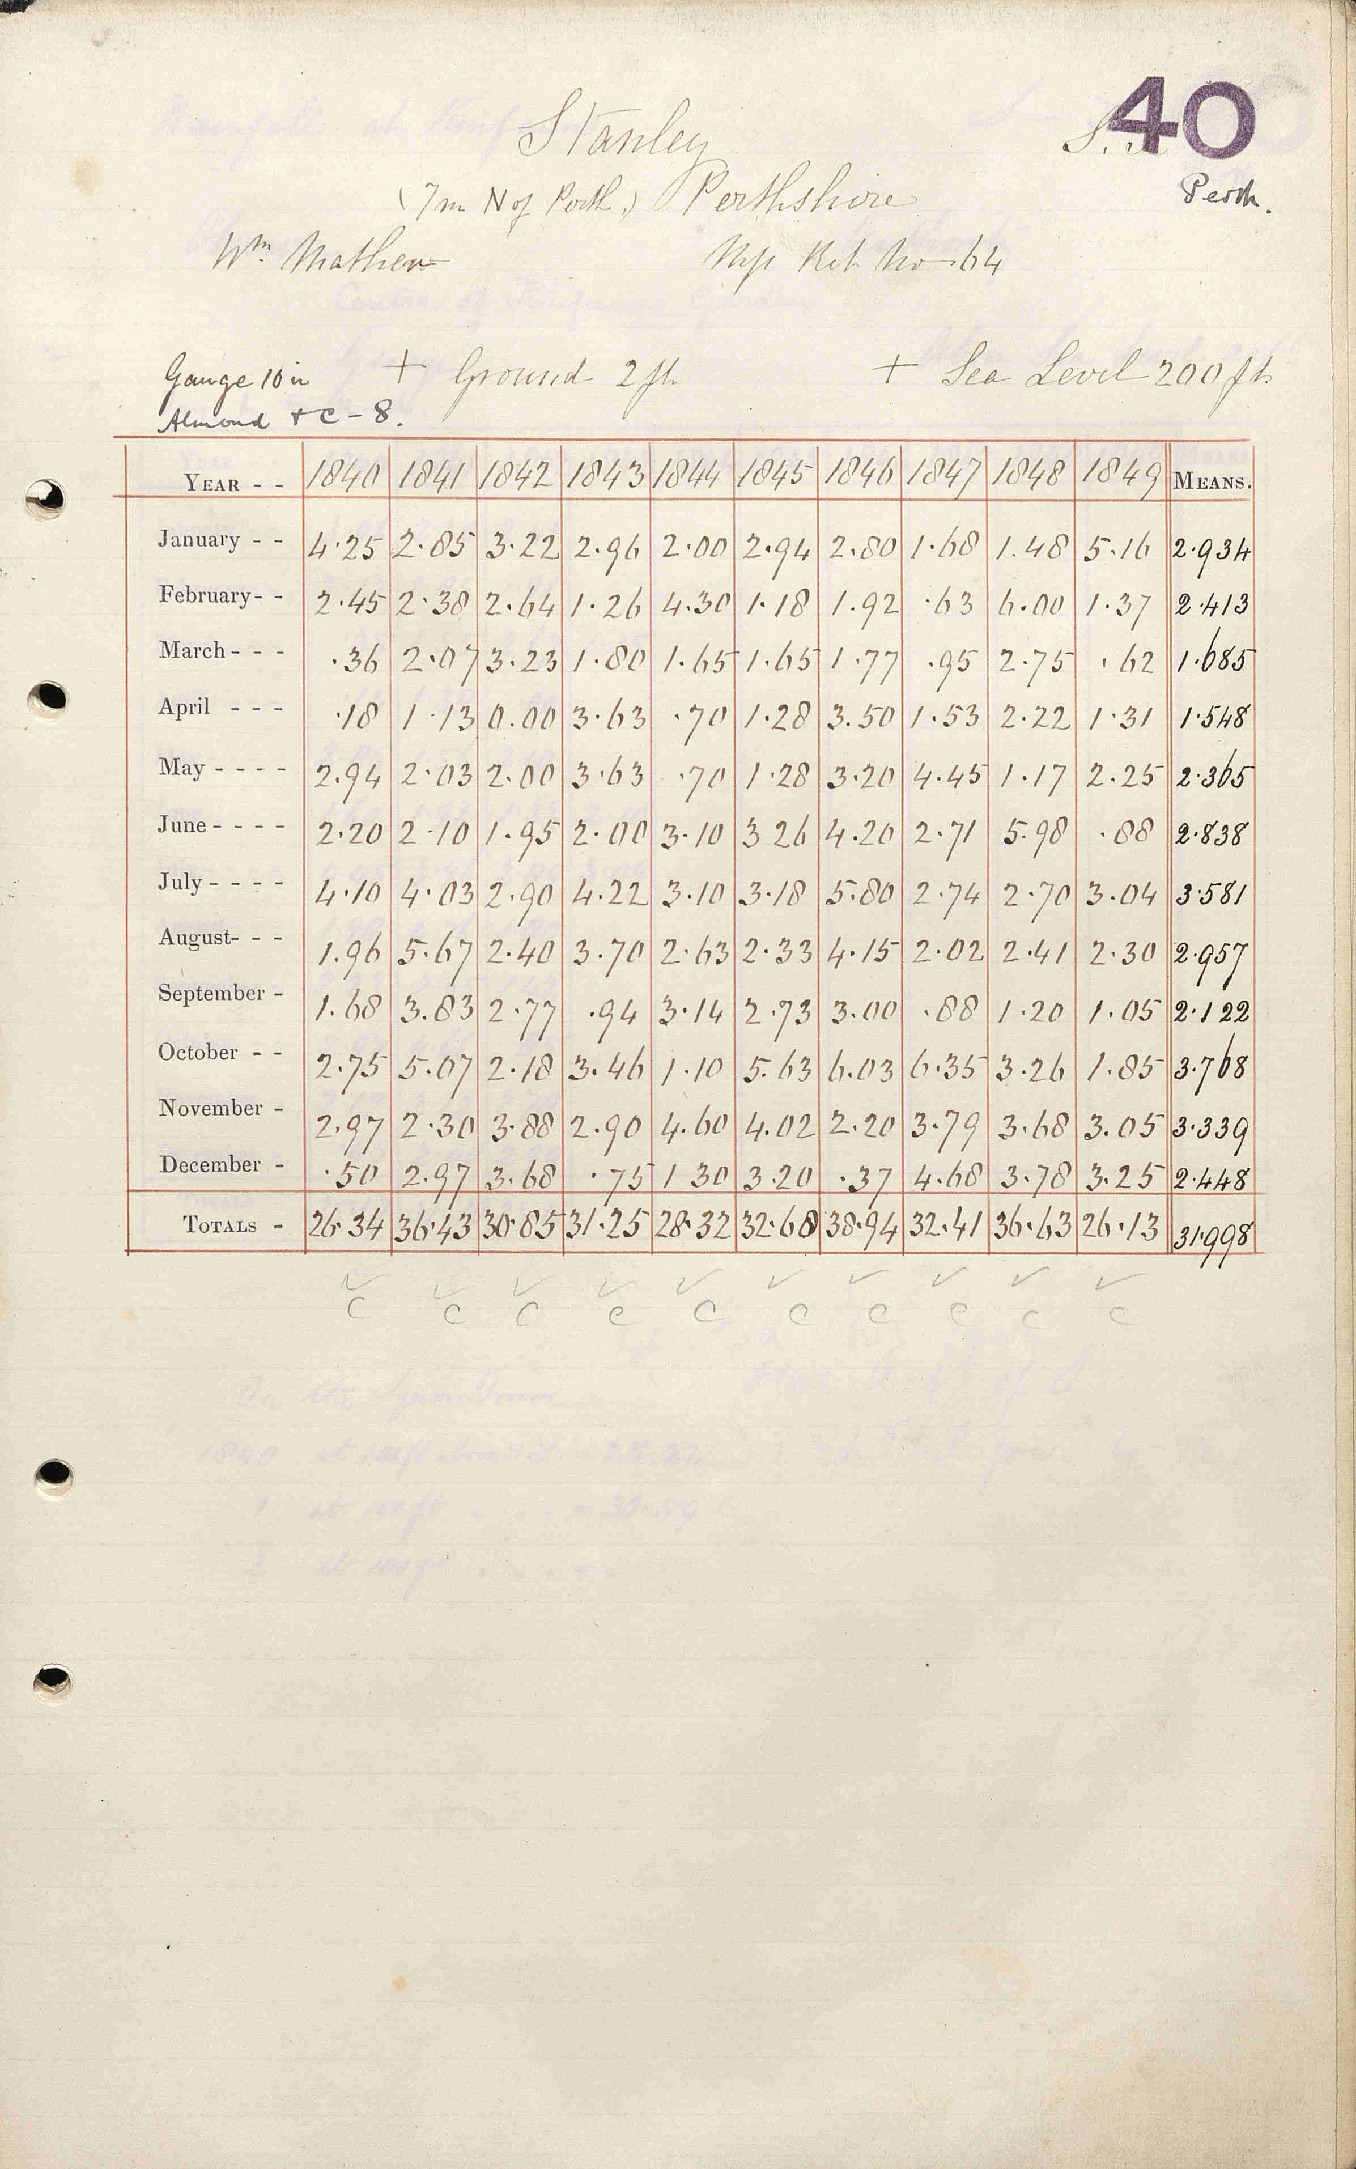 40
Stanley
(7m N of Perth) Perthshire
Perth.
Wm. Mathew No 64
Gauge 10 in + Ground 2 ft. + Sea Level 200 ft.
Almond & C - 8.
YEAR - - 1840 1841 1842 1843 1844 1845 1846 1847 1848 1849 MEANS.
January - - 4.25 2.85 3.22 2.96 2.00 2.94 2.80 1.68 1.48 5.16 2.934
February - - 2.45 2.38 2.64 1.26 4.30 1.18 1.92 .63 6.00 1.37 2.413
March - - - .36 2.07 3.23 1.80 1.65 1.65 1.77 .95 2.75 .62 1.685
April - - - .18 1.13 0.00 3.63 .70 1.28 3.50 1.53 2.22 1.31 1.548
May - - - - 2.94 2.03 2.00 3.63 .70 1.28 3.20 4.45 1.17 2.25 2.365
June - - - - 2.20 2.10 1.95 2.00 3.10 3 26 4.20 2.71 5.98 .88 2.838
July - - - - 4.10 4.03 2.90 4.22 3.10 3.18 5.80 2.74 2.70 3.04 3.581
August - - - 1.96 5.67 2.40 3.70 2.63 2.33 4.15 2.02 2.41 2.30 2.957
September - 1.68 3.83 2.77 .94 3.14 2.73 3.00 .88 1.20 1.05 2.122
October - - 2.75 5.07 2.18 3.46 1.10 5.63 6.03 6.35 3.26 1.85 3.768
November - 2.97 2.30 3.88 2.90 4.60 4.02 2.20 3.79 3.68 3.05 3.339
December - .50 2.97 3.68 .75 1 30 3.20 .37 4.68 3.78 3.25 2.448
TOTALS - 26.34 36.43 30.85 31.25 28.32 32.68 38.94 32.41 36.63 26.13 31.998
C C C C C C C C C C